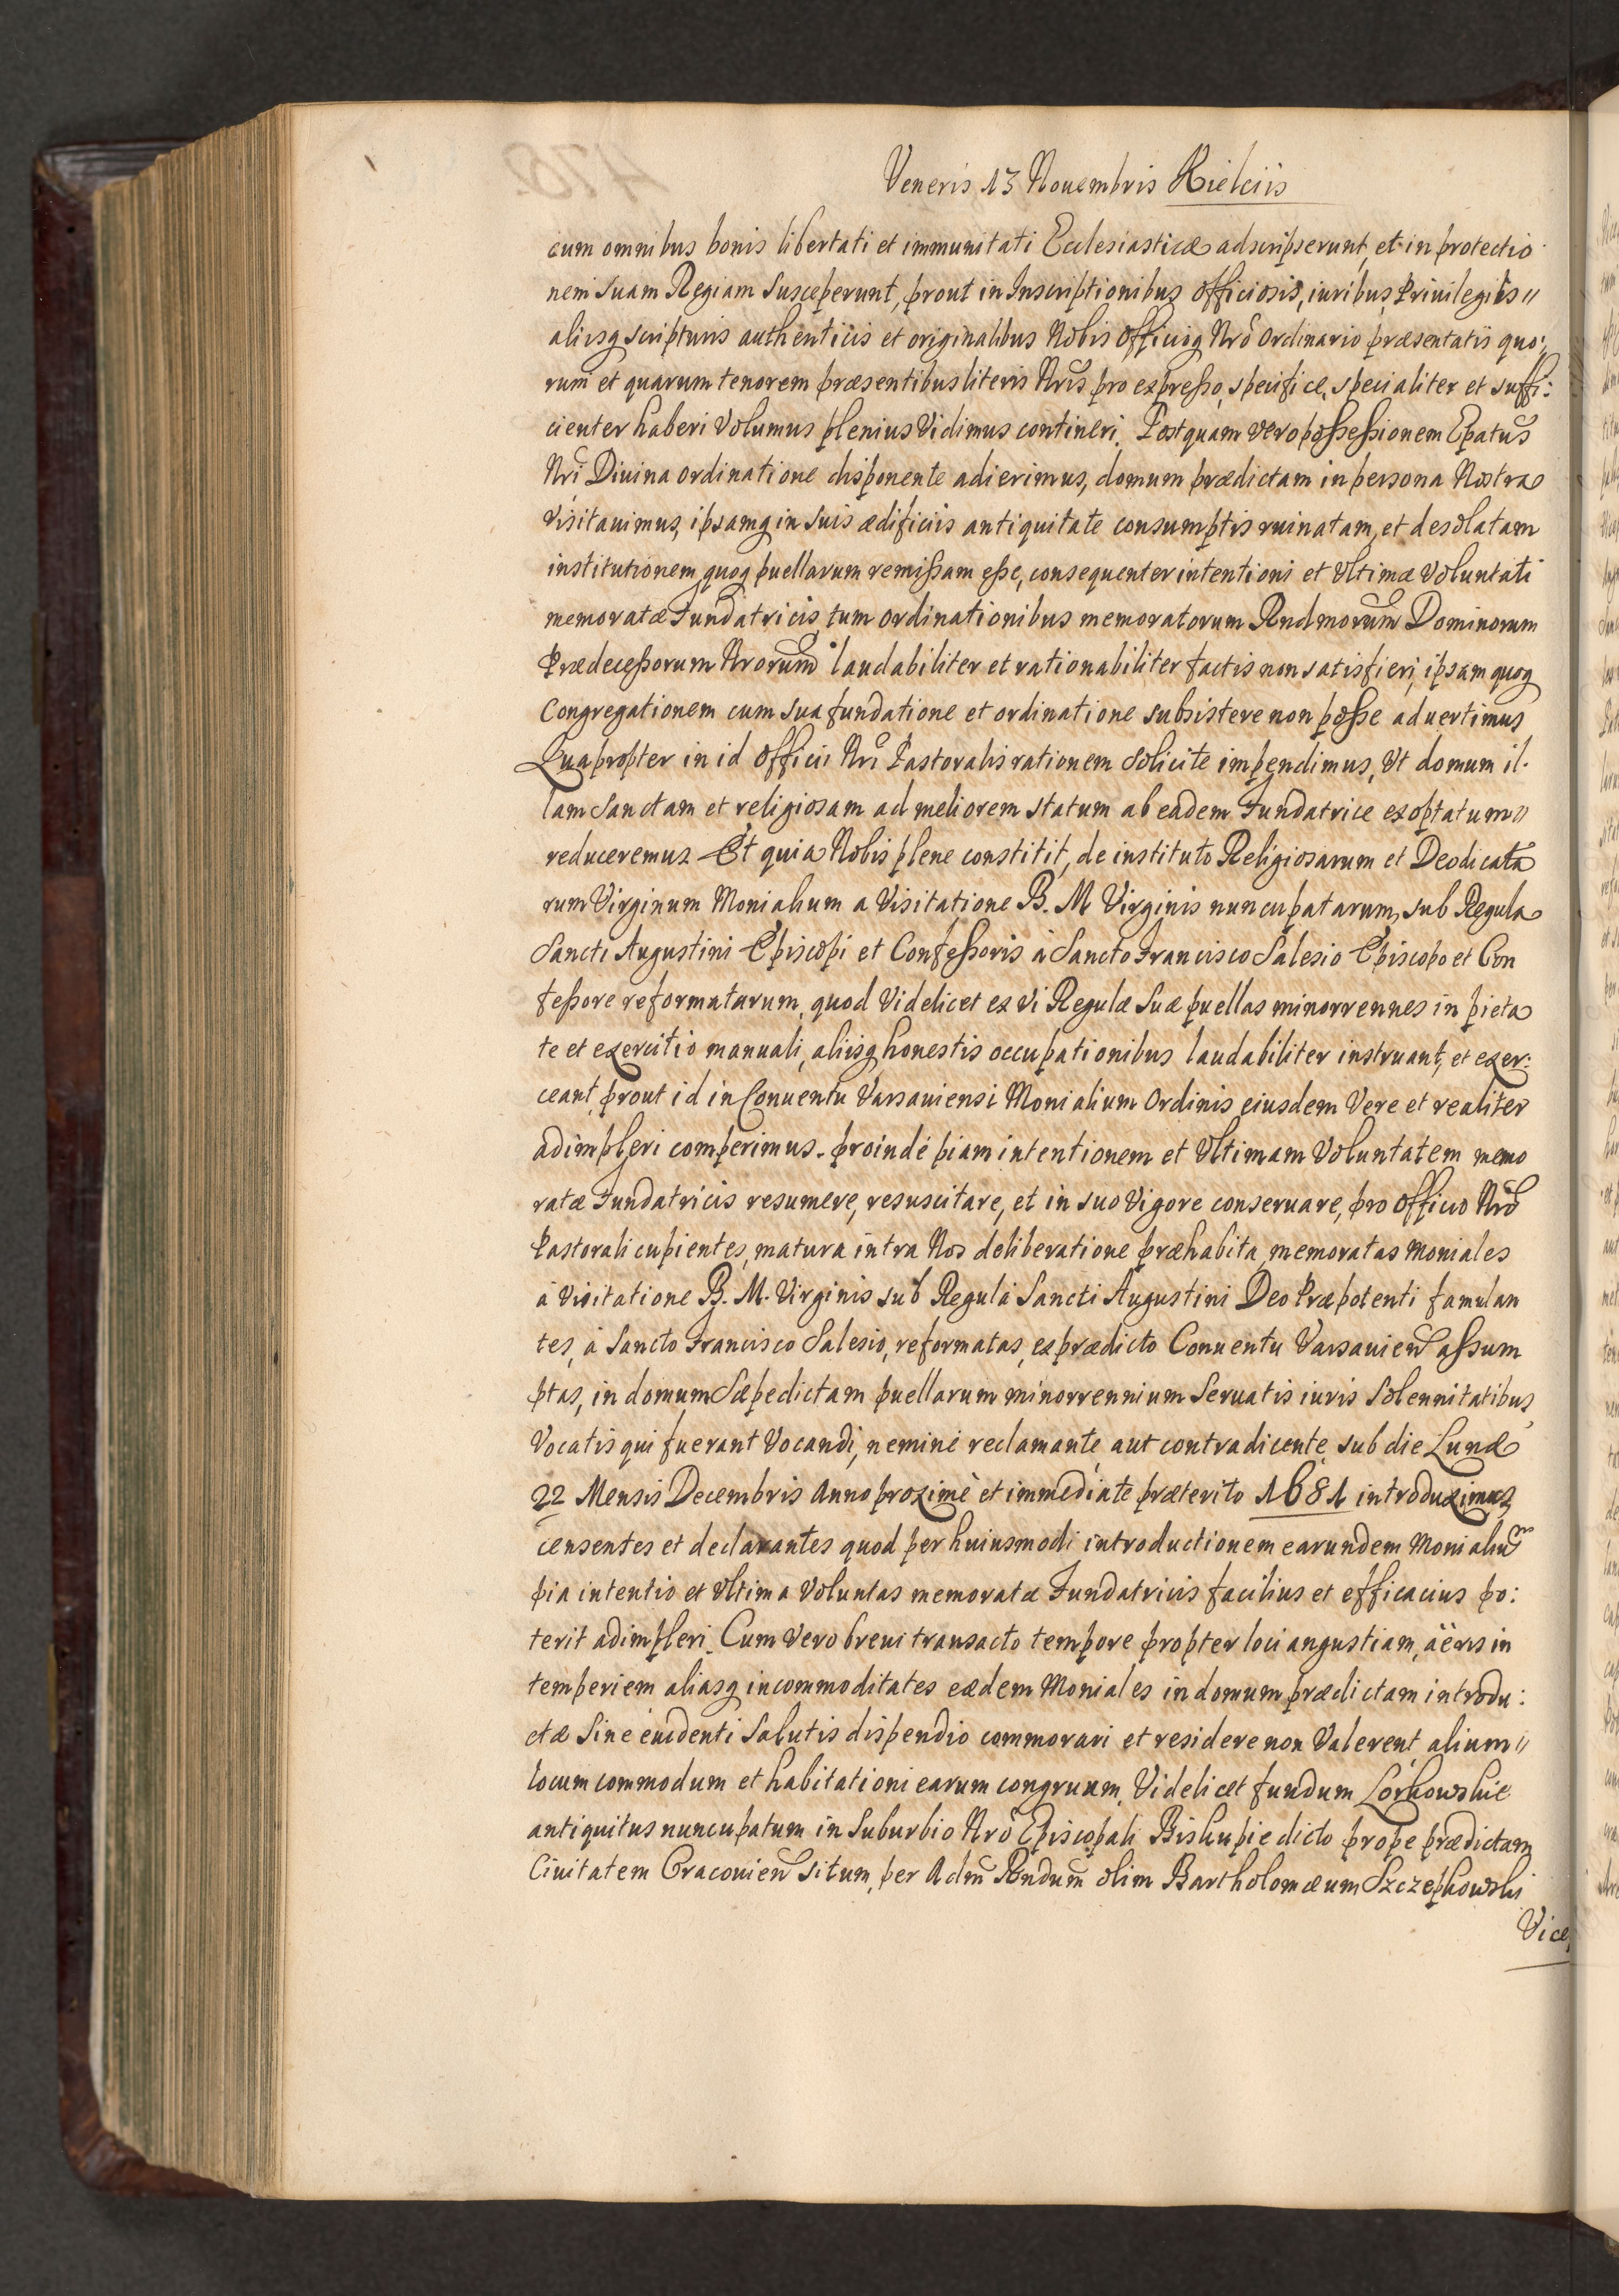 Veneris 13 Nouembris Kielciis
cum omnibus bonis libertati et immunitati Ecclesiasticæ adscripserunt, et in protectio
nem suam Regiam susceperunt, prout in Inscriptionibus officiosis, iuribus Priuilegiis //
aliisq scripturis authenticis et originalibus Nobis Officioq Nrõ Ordinario præsentatis quo:
rum et quarum tenorem præsentibus literis Nrĩs pro expresso, specifice, specialiter et suffi:
cienter haberi Volumus plenius Vidimus contineri. Postquam vero possessionem Epatus
Nrĩ Diuina ordinatione disponente adierimus, domum prædictam in persona Nostra
visitauimus, ipsamq in suis ædificiis antiquitate consumptis ruinatam, et desolatam
institutionem quoq puellarum remissam esse, consequenter intentioni et Vltimæ Voluntati
memoratæ Fundatricis tum ordinationibus memoratorum Rndmorum Dominorum
Prædecessorum Nrorum laudabiliter et rationabiliter factis non satisfieri, ipsam quoq
Congregationem cum sua fundatione et ordinatione subsistere non posse aduertimus
Quapropter in id Officii Nrĩ Pastoralis rationem solicite impendimus, Vt domum il.
lam Sanctam et religiosam ad meliorem statum ab eadem Fundatrice exoptatum //
reduceremus Et quia Nobis plene constitit, de instituto Religiosarum et Deodicata
rum Virginum Monialium a Visitatione B. M Virginis nuncupatarum, sub Regula
Sancti Augustini Episcopi et Confessoris à Sancto Francisco Salesio Episcopo et Con
fessore reformatarum, quod Videlicet ex vi Regulæ suæ puellas minorrennes in pieta
te et exercitio manuali, aliisq honestis occupationibus laudabiliter instruant, et exer:
ceant, prout id in Conuentu Varsauiensi Monialium Ordinis eiusdem Vere et realiter
adimpleri comperimus. proinde piam intentionem et Vltimam Voluntatem memo
ratæ Fundatricis resumere, resuscitare, et in suo Vigore conseruare, pro officio Nrõ
Pastorali cupientes, matura intra Nos deliberatione præhabita, memoratas Moniales
à Visitatione B. M. Virginis sub Regula Sancti Augustini Deo Præpotenti famulan
tes, à Sancto Francisco Salesio, reformatas, ex prædicto Conuentu Varsauien assum
ptas, in domum Sæpedictam puellarum minorrennium seruatis iuris solennitatibus,
Vocatis qui fuerant Vocandi, nemine reclamante, aut contradicente, sub die Lunæ
22 Mensis Decembris Anno proximè et immediate præterito 1681 introduximus
censentes et declarantes quod per huiusmodi introductionem earundem Monialiũ
pia intentio et Vltima Voluntas memoratæ Fundatricis facilius et efficacius po:
terit adimpleri. Cum vero breui transacto tempore propter loci angustiam, aëris in
temperiem aliasq incommoditates eædem Moniales in domum prædictam introdu:
ctæ sine euidenti Salutis dispendio commorari et residere non Valerent, alium //
locum commodum et habitationi earum congruum, Videlicet fundum Lorkowskie
antiquitus nuncupatum in suburbio Nrõ Episcopali Biskupie dicto prope prædictam
Ciuitatem Cracouien situm, per Adm Rndum olim Bartholomæum Szczepkowski
Vice